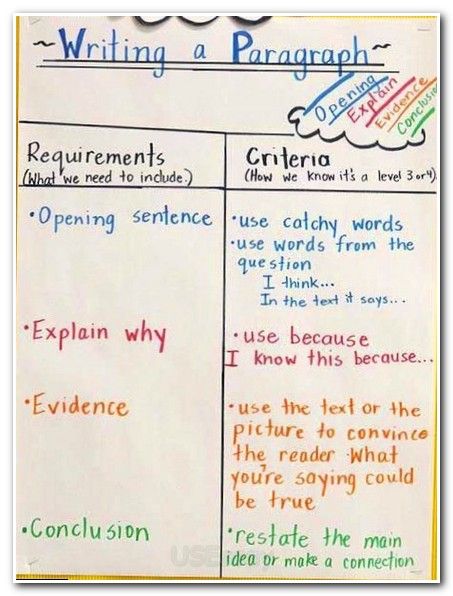 ~Writing a Paragraph~
Opening
Explain
Evidence
Conclusion
Requirements
(What we need to include.)
Criteria
(How we know it's a level 3 or 4)
•Opening sentence
•use catchy words
•use words from the
question
I think...
In the text it says...
•Explain why
•use because
I know this because...
•Evidence
•use the text or the
picture to convince
the reader what
you're saying could
be true
•Conclusion
•restate the main
idea or make a connection